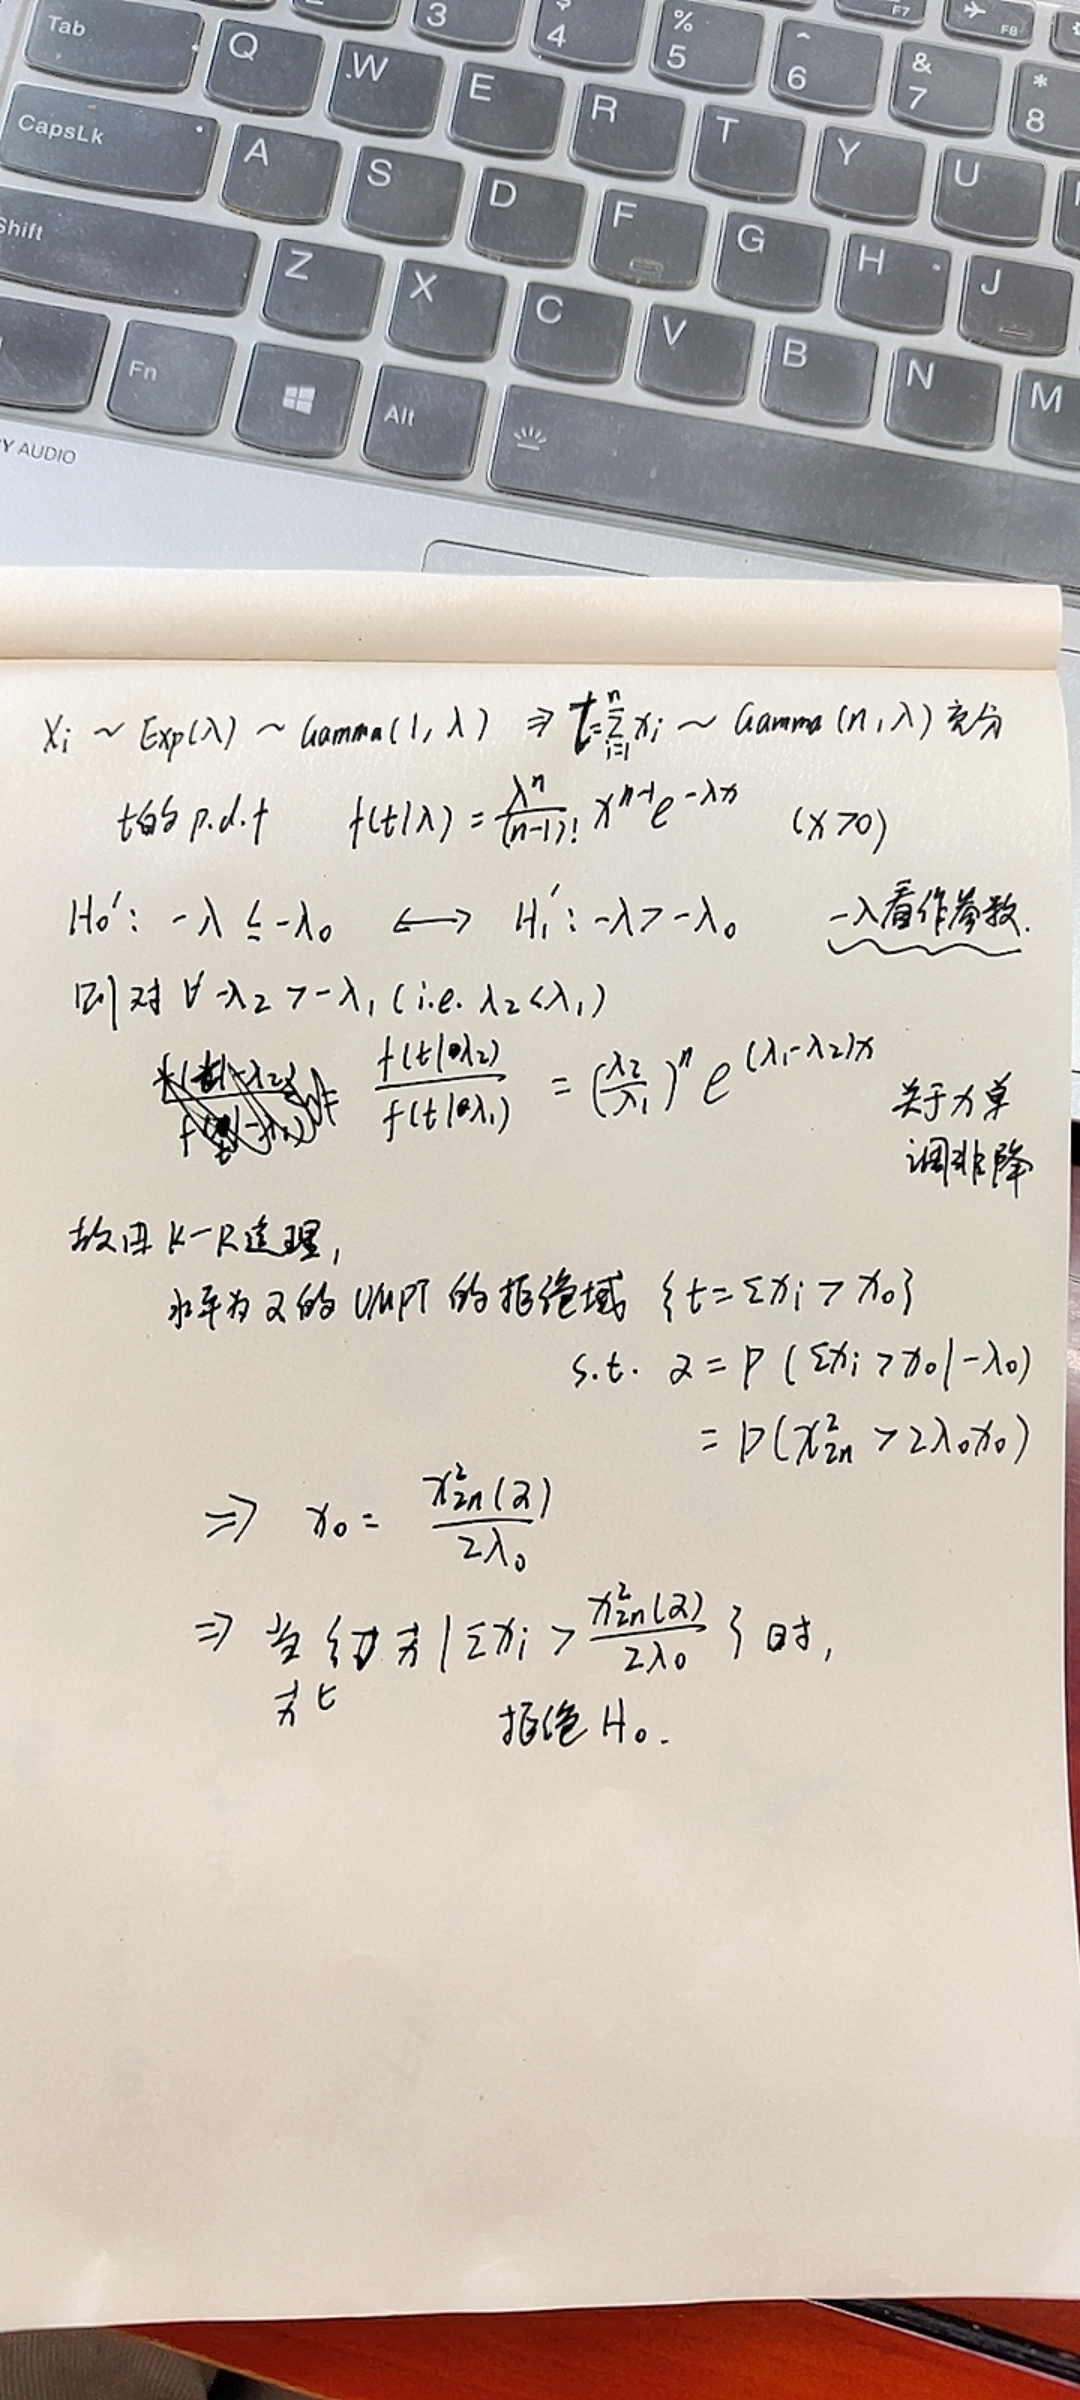 Tab 3 $ 4 % 5 ^ 6 & 7 * 8 F7 F8
Q W E R T Y U
CapsLk A S D F G H J
Shift Z X C V B N M
Fn Alt
Y AUDIO
Xi ~ Exp(λ) ~ Gamma(1, λ) ⇒ t=∑_{i=1}^{n} xi ~ Gamma(n, λ) 充分
t的 p.d.f f(t|λ) = λ^n/(n-1)! x^{n-1} e^{-λx} (x>0)
H0′: -λ ≤ -λ0 ↔ H1′: -λ > -λ0 -λ看作参数.
则对 ∀ -λ2 > -λ1 (i.e. λ2<λ1)
= f(t|λ2)/f(t|λ1) = (λ2/λ1)^n e^{(λ1-λ2)x} 关于x单
调非降
故由 K-R定理,
水平为α的 UMPT 的拒绝域 {t = Σxi > x0}
s.t. α = P(Σxi > x0|-λ0)
= P(χ²_{2n} > 2λ0x0)
⇒ x0 = χ²_{2n}(α)/2λ0
⇒ 当 {x | Σxi > χ²_{2n}(α)/2λ0} 时,
拒绝 H0.